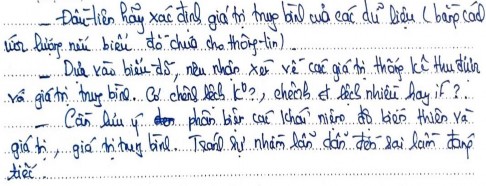 _ Đầu tiên hãy xác định giá trị trung bình của các dữ liệu (bằng cách
ước lượng nếu biểu đồ chưa cho thông tin).
_ Dựa vào biểu đồ, nêu nhận xét về các giá trị thống kê thu được
và giá trị trung bình. Có chênh lệch k°?, chênh lệch nhiều hay ít?..
_ Cần lưu ý phân biệt các khái niệm độ biến thiên và
giá trị, giá trị trung bình. Tránh sự nhầm lẫn dẫn đến sai lầm đáng
tiếc..